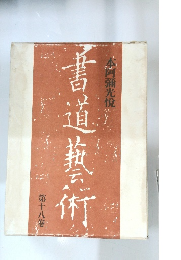 本阿彌光悦
書道藝術
第十八巻